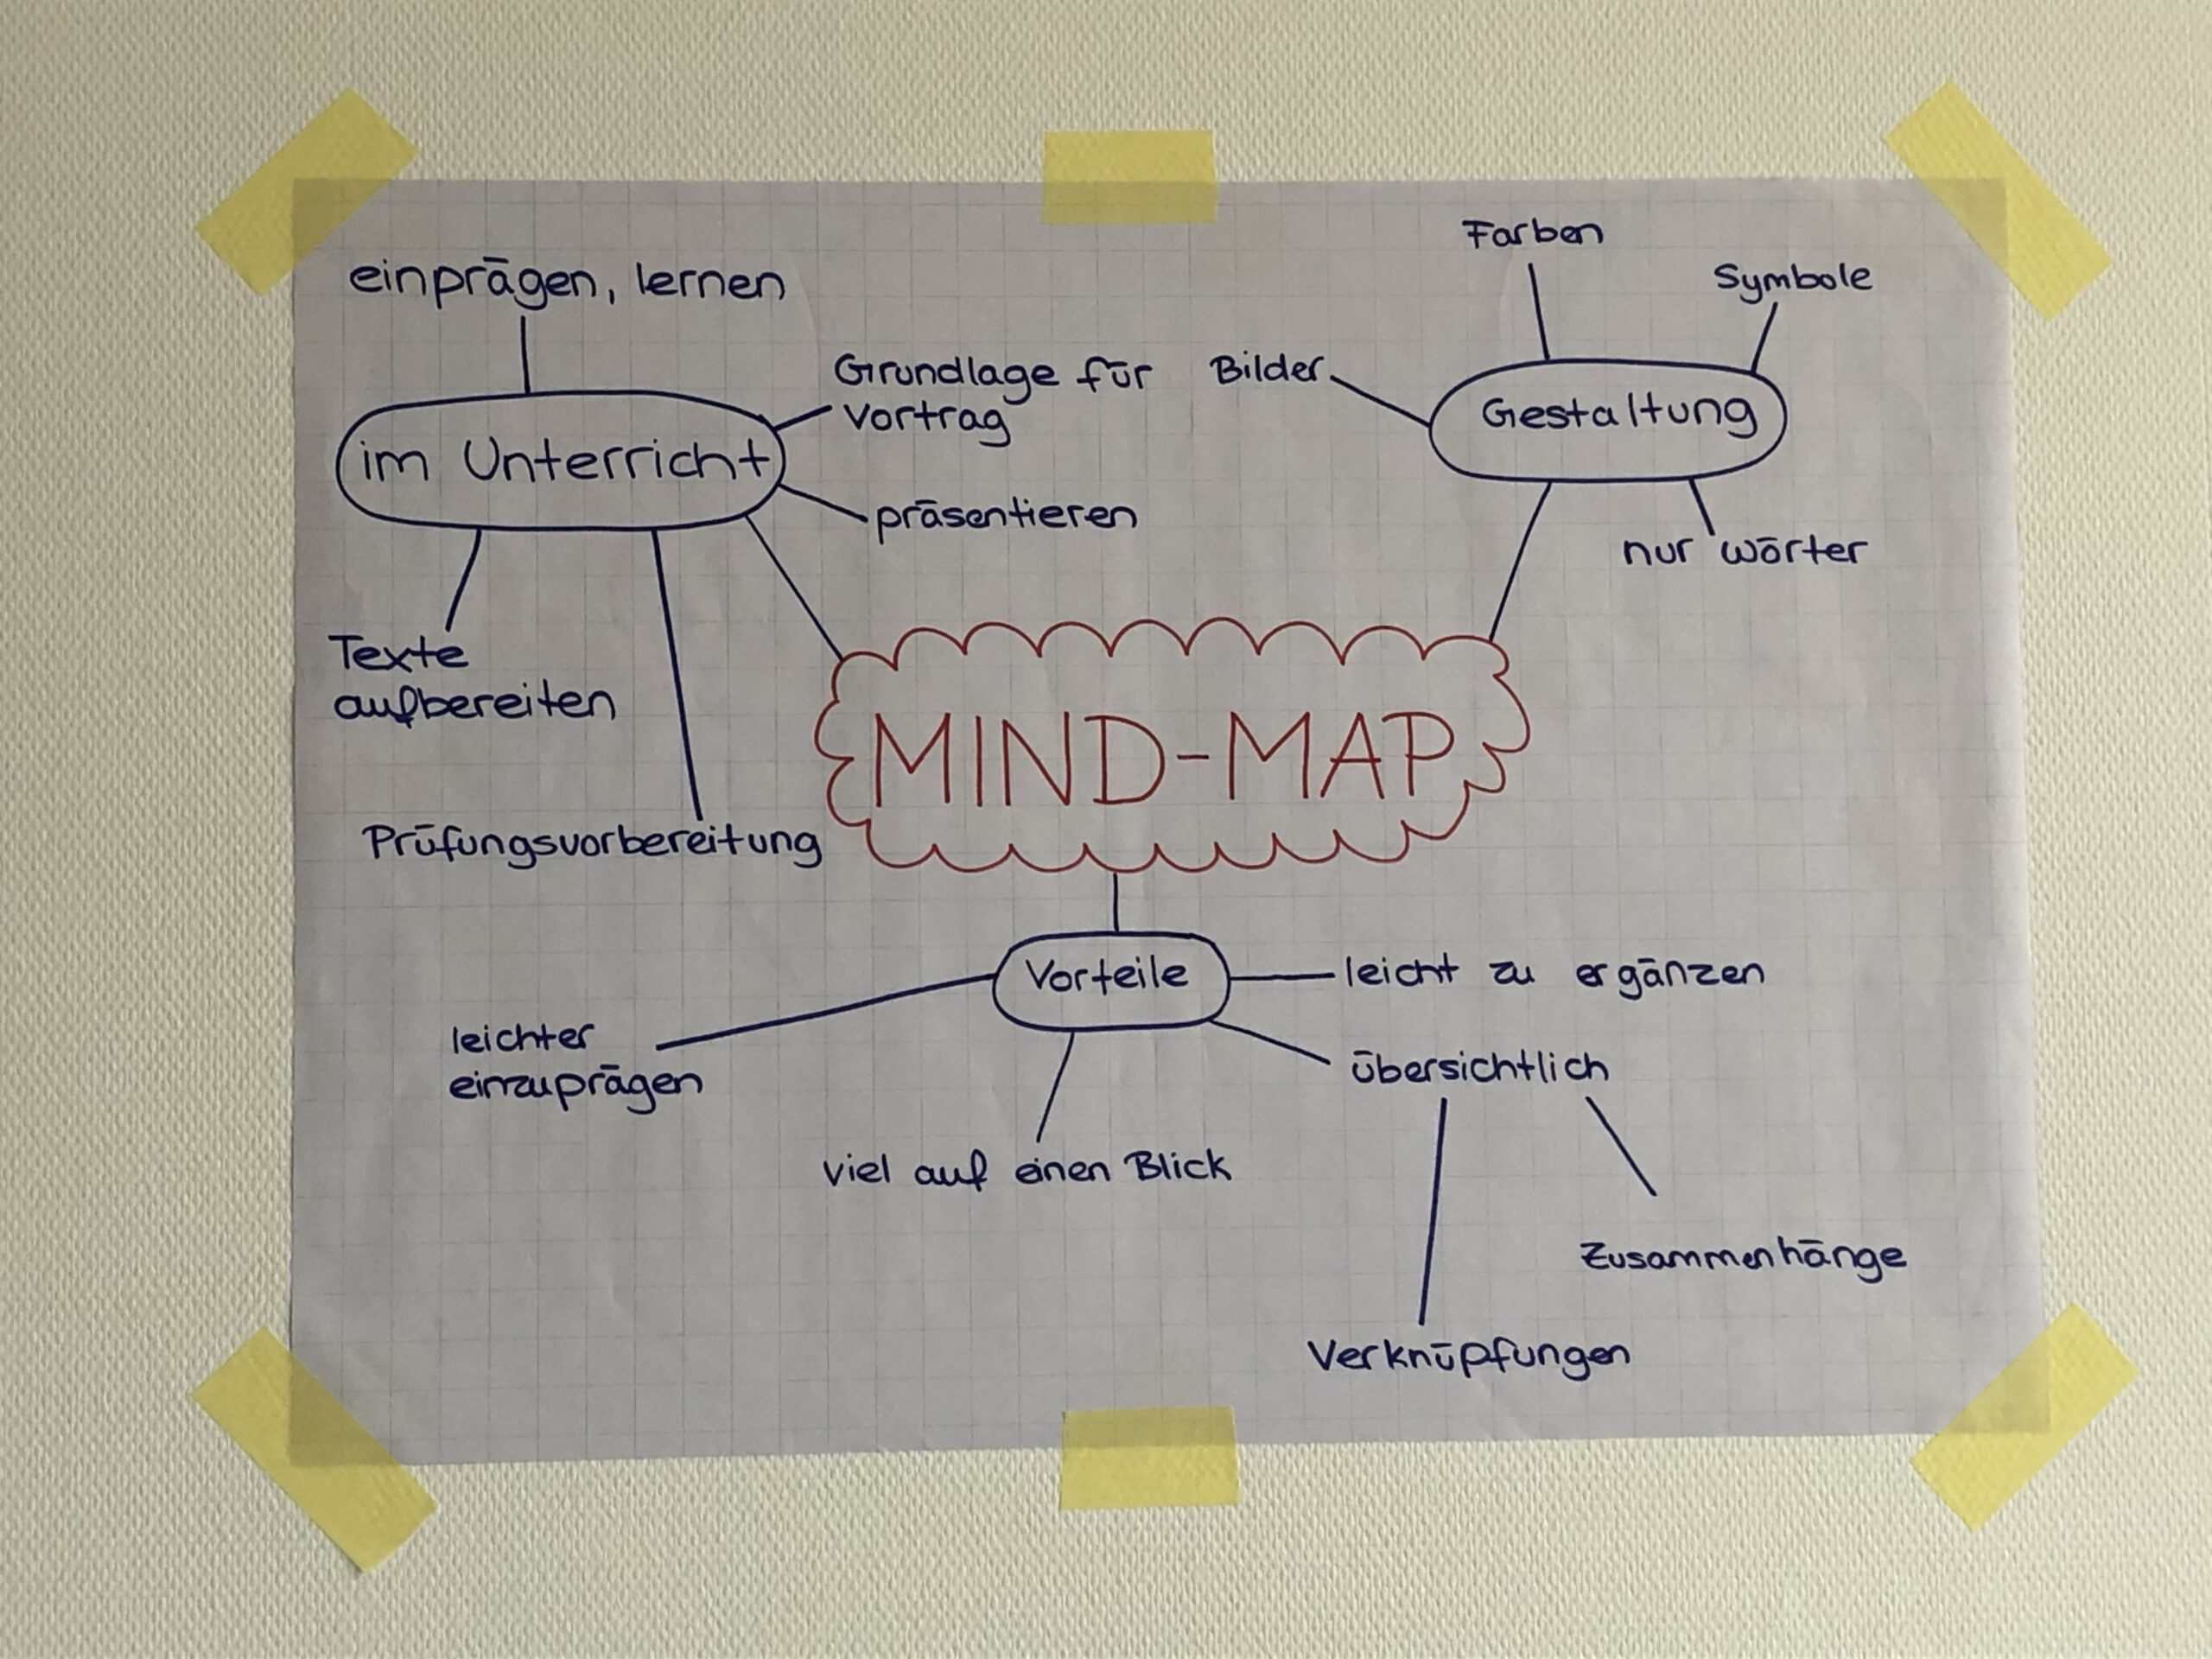 einprägen, lernen
im Unterricht
Grundlage für
Vortrag
präsentieren
Texte
aufbereiten
Prüfungsvorbereitung
Farben
Symbole
Bilder
Gestaltung
nur Wörter
MIND-MAP
Vorteile
leicht zu ergänzen
übersichtlich
Zusammenhänge
Verknüpfungen
viel auf einen Blick
leichter
einzuprägen